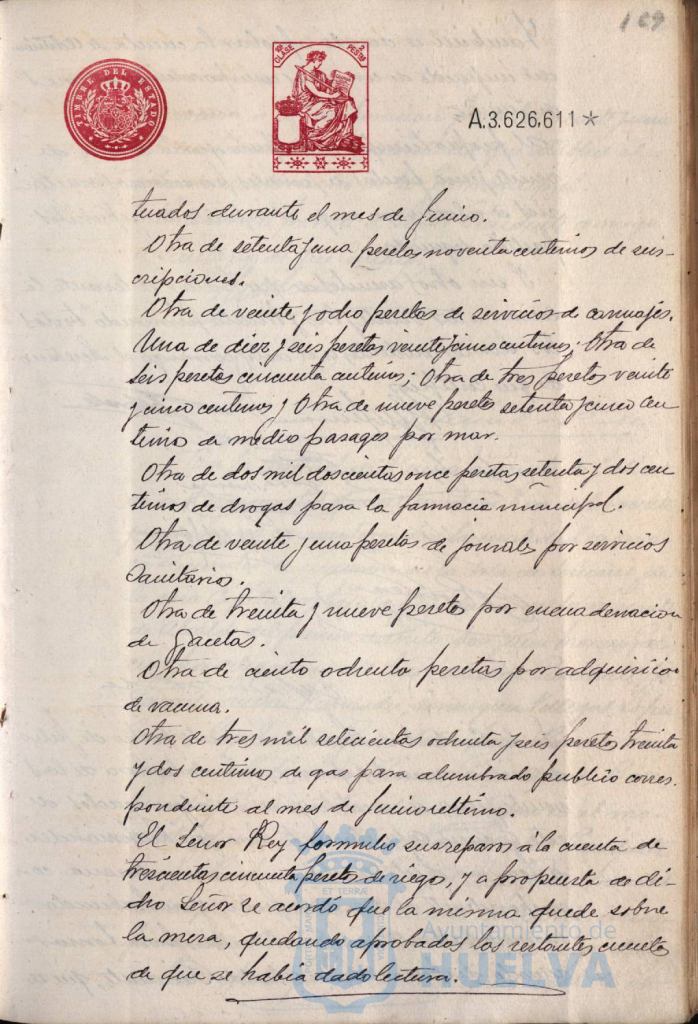 169
TIMBRE DEL ESTADO
10ª CLASE 2 PESTAS
A.3.626,611*
tuados durante el mes de Junio.
Otra de setenta y una pesetas noventa centimos de sus-
cripciones.
Otra de veinte y ocho pesetas de servicios de carruajes.
Una de diez y seis pesetas veinte y cinco centimos; Otra de
seis pesetas cincuenta centimos; Otra de tres pesetas veinte
y cinco centimos y Otra de nueve pesetas setenta y cinco cen
timos de medio pasages por mar.
Otra de dos mil doscientas once pesetas setenta y dos cen
timos de drogas para la farmacia municipal.
Otra de veinte y una pesetas de jornales por servicios
Sanitarios.
Otra de treinta y nueve pesetas por encuadernacion
de Gacetas.
Otra de ciento ochenta pesetas por adquisicion
de vacuna.
Otra de tres mil setecientas ochenta y seis pesetas treinta
y dos centimos de gas para alumbrado publico corres-
pondiente al mes de Junio ultimo.
El Señor Rey formulo sus reparos á la cuenta de
trescientas cincuenta pesetas de riegos, y a propuesta de di-
cho Señor se acordó que la misma quede sobre
la mesa, quedando aprobadas las restantes cuentas
de que se habia dado lectura.
ET TERRÆ
Ayuntamiento de
HUELVA